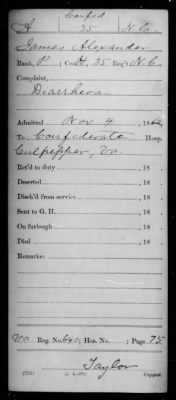 Confed
A 35 N. Co.
James Alexander
Rank, P; Co. H, 35 Reg't N. C.
Complaint,
Diarrhoea
Admitted Nov. 4, 186
To Confederate Hosp.
Culpepper, Va.
Ret'd to duty , 18
Deserted , 18
Disch'd from service , 18
Sent to G. H. , 18
On furlough , 18
Died , 18
Remarks:
Va Reg. No. 640; Hos. No. ; Page 75
Taylor
Copyist.